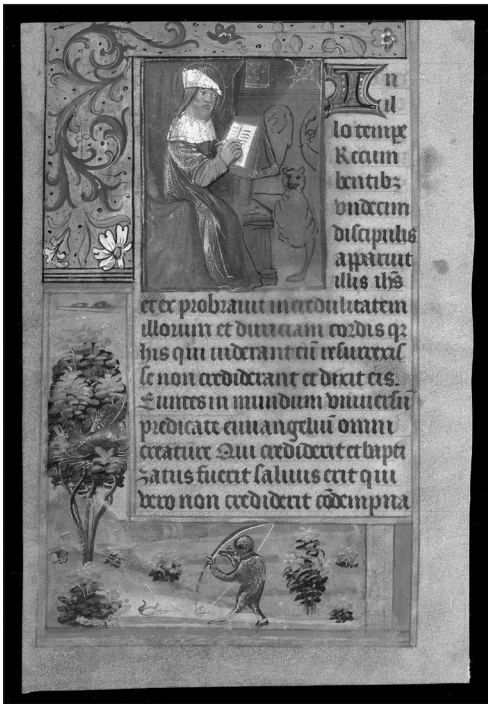 In
il
lo tempe
Recum
bentibz
vndecim
discipulis
apparuit
illis ihs̄
et ex probrauit incredulitatem
illorum et duriciam cordis qz
his qui uiderant eū resurrexis
se non crediderant et dixit eis.
Euntes in mundum vniuersū
predicate euuangeliū omni
creature Qui crediderit et bapti
zatus fuerit saluus erit qui
vero non crediderit cōdempna